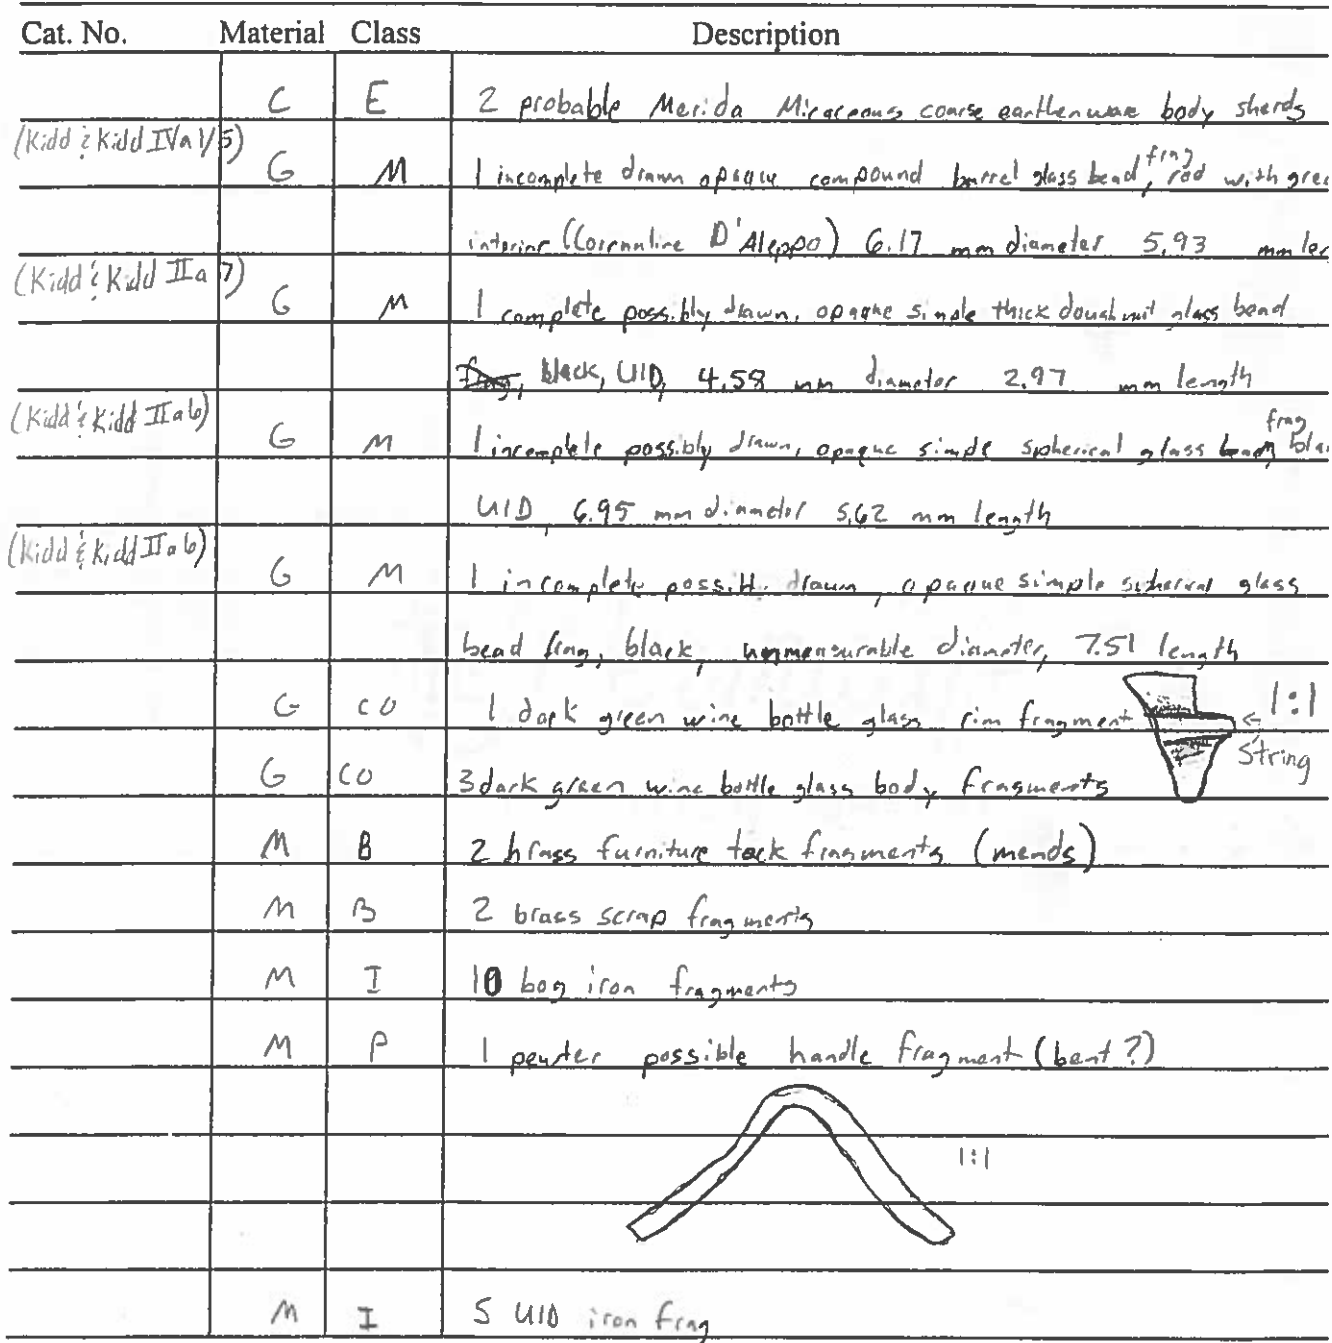 Cat. No. Material Class Description
C E 2 probable Merida Micaceous coarse earthenware body sherds
(Kidd & Kidd IVa1/5)
G M 1 incomplete drawn opaque compound barrel glass bead, frag red with gree
interior (Cornaline D'Aleppo) 6.17 mm diameter 5.93 mm len
(Kidd & Kidd IIa7)
G M 1 complete possibly drawn, opaque simple thick doughnut glass bead
frag, black, UID, 4.58 mm diameter 2.97 mm length
(Kidd & Kidd IIa6)
G M 1 incomplete possibly drawn, opaque simple spherical glass bead frag, blac
UID, 6.95 mm diameter 5.62 mm length
(Kidd & Kidd IIa6)
G M 1 incomplete possibly drawn, opaque simple spherical glass
bead frag, black, unmeasurable diameter, 7.51 length
G CO 1 dark green wine bottle glass rim fragment 1:1
← String
G CO 3 dark green wine bottle glass body fragments
M B 2 brass furniture tack fragments (mends)
M B 2 brass scrap fragments
M I 10 bog iron fragments
M P 1 pewter possible handle fragment (bent?)
1:1
M I 5 UID iron frag